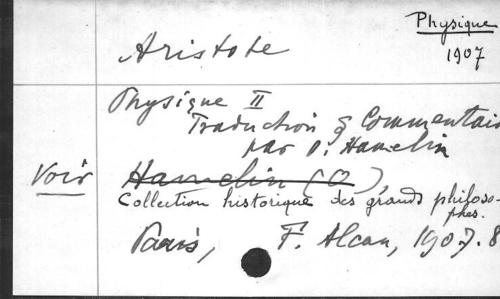 Physique
1907
Aristote
Physique II
Traduction & Commentai
par O. Hamelin
Voir Hamelin (O),
Collection historique des grands philoso-
phes.
Paris, F. Alcan, 1907. 8